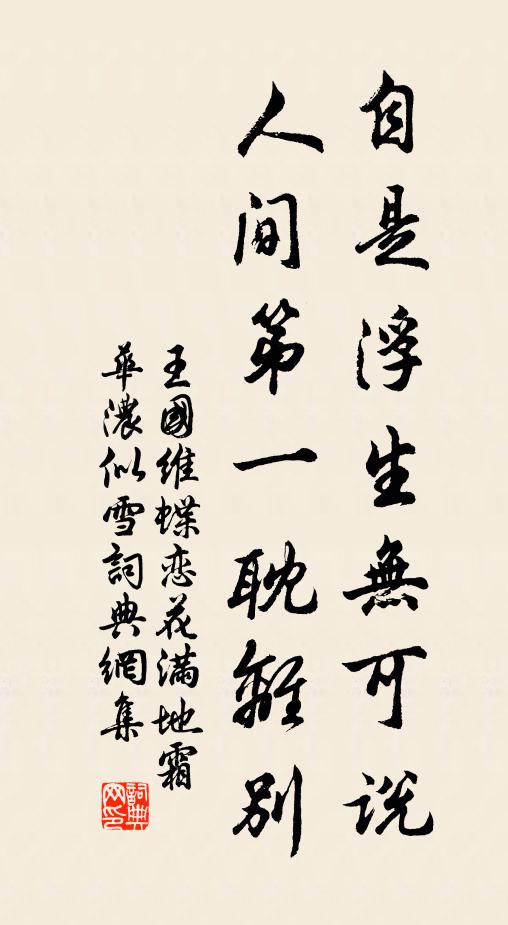 自是浮生無可说
人间第一耽離别
王國維蝶恋花满地霜
華濃似雪詞典網集
詞典网印